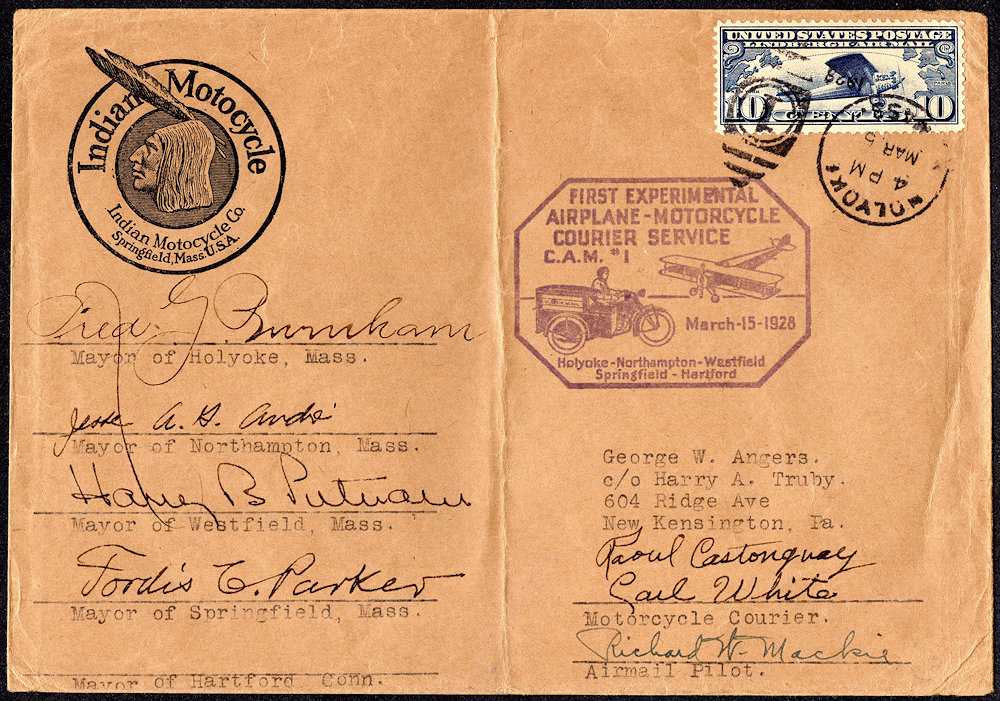 Indian Motocycle
Indian Motocycle Co.
Springfield, Mass. U.S.A.
UNITED STATES POSTAGE
LINDBERGH AIR MAIL
10 CENTS 10
1928
HOLYOKE
4 PM
MAR 5
MASS.
FIRST EXPERIMENTAL
AIRPLANE-MOTORCYCLE
COURIER SERVICE
C.A.M. #1
March-15-1928
Holyoke-Northampton-Westfield
Springfield - Hartford
Fred G Burnham
Mayor of Holyoke, Mass.
Jesse A. G. André
Mayor of Northampton, Mass.
Harvey B Putnam
Mayor of Westfield, Mass.
Fordis C. Parker
Mayor of Springfield, Mass.
Mayor of Hartford Conn.
George W. Angers.
c/o Harry A. Truby.
604 Ridge Ave
New Kensington, Pa.
Raoul Castonguay
Carl White
Motorcycle Courier.
Richard W. Mackie
Airmail Pilot.